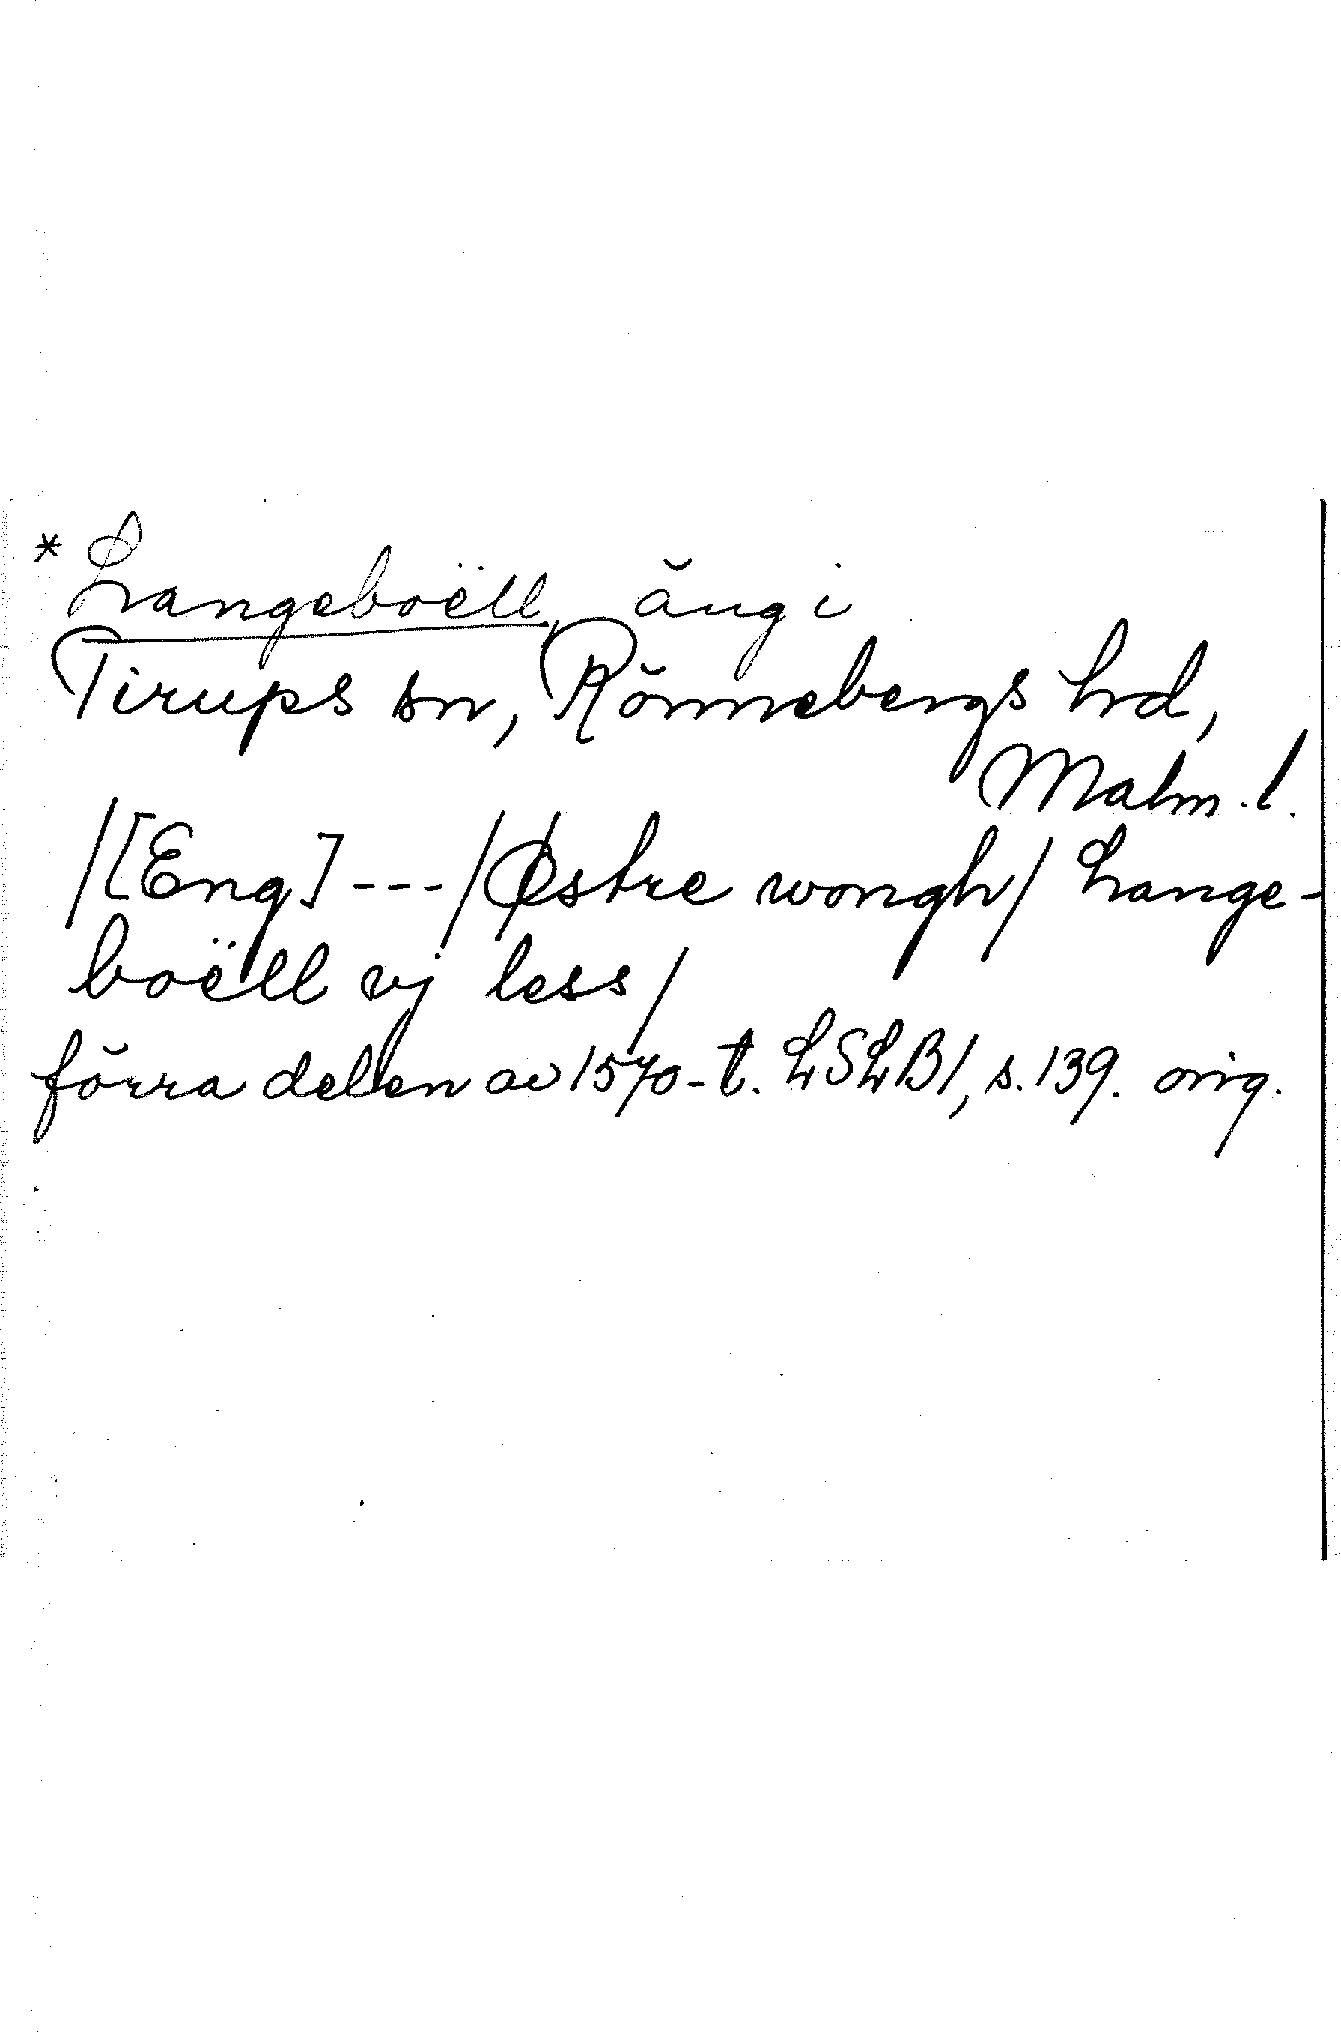 * Langeboëll, äng i
Tirups sn, Rönnebergs hd,
Malm. l.
/[Eng] --- /Østre wongh/ Lange-
boëll vj less/
förra delen av 1570-t. LSLB1, s. 139. orig.